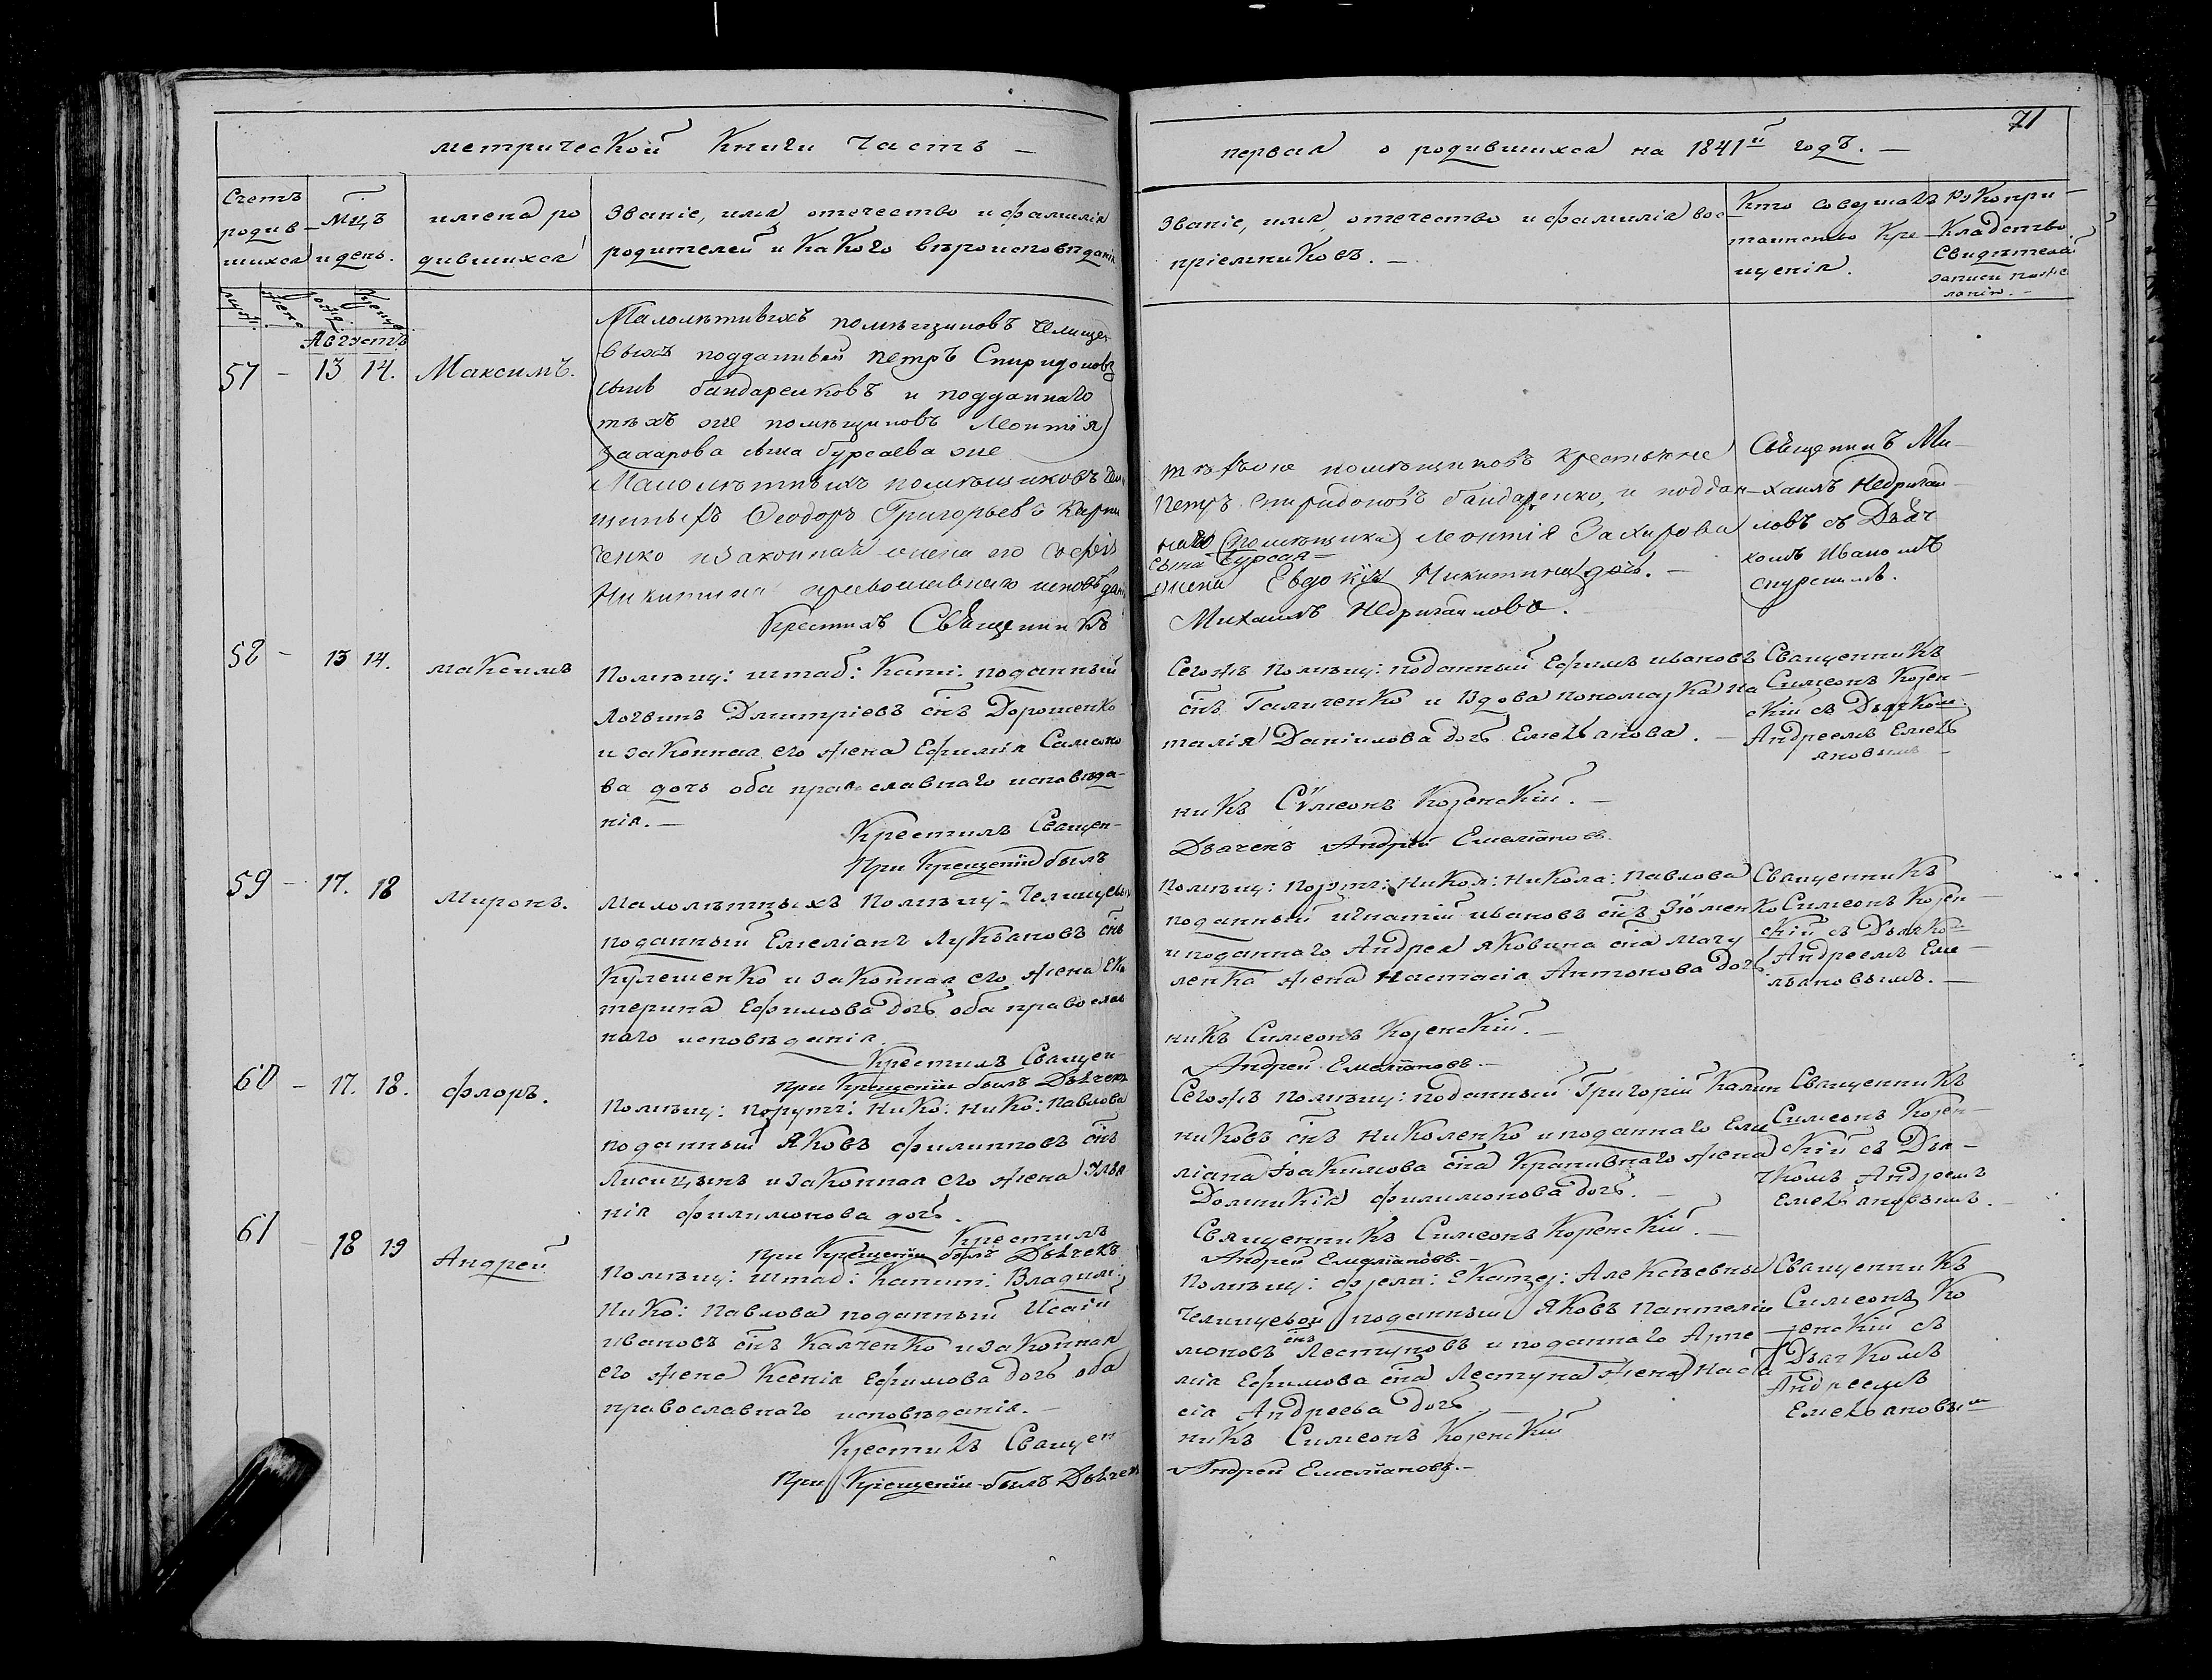 71
метрической Книги часть —
первая о родившихся на 1841й годъ. —
Счетъ
родив-
шихся
Мцъ
и день.
имена ро
дившихся
Званіе, имя, отечество и фамилія
родителей и какого вѣроисповѣданія
Званіе, имя, отечество и фамилія вос-
пріемниковъ. —
Кто совершалъ
таинство Кре-
щенія.
Рукопри-
кладство
свидѣтелей
записи
Августъ
57 — 13 14. Максимъ.
Малолѣтныхъ помѣщиковъ Челище-
выхъ подданный Петръ Спиридоновъ
сынъ бандаренковъ и подданнаго
тѣхъ же помѣщиковъ Леонтія
Захарова сына бурсаева же
Малолѣтныхъ помѣщиковъ
Феодоръ Григорьевъ
ченко и законная жена его Софія
Никитина православнаго исповѣданія
Крестилъ Священникъ
помѣщиковъ крестьяне
Петръ Спиридоновъ бандаренко, и поддан-
наго (помѣщика) Леонтія Захарова
сына Бурсая
жена Евдокія Никитина дочь. —
Михаилъ Недригайловъ.
Священникъ Ми-
хаилъ Недригай-
ловъ съ Дьяч
комъ Иваномъ
58 — 13 14. Максимъ
Помѣщ: штаб: Капи: поданный
Логвинъ Дмитріевъ снъ Дорошенко
и законная его жена Ефимія Самсоно
ва дочь оба православнаго исповѣда-
нія. —
Крестилъ Священ-
При Крещеніи былъ
Сегожъ помѣщ: поданный Ефимъ Ивановъ
снъ Галиченко и вдова пономарка На
талія Даніилова дочь Емельянова. —
никъ Сѵмеонъ Коренскій. —
Дьячекъ Андрей Емеліановъ.
Священникъ
Симеонъ Корен-
скій съ Дьячком
Андреемъ Емель
яновымъ —
59 — 17. 18 Миронъ.
Малолѣтныхъ помѣщ: Челищевых
поданный Емеліанъ Лукьяновъ снъ
Кулешенко и законная его жена Ека
терина Ефимова дочь оба православ
наго исповѣданія
Крестилъ Священ-
При Крещеніи былъ Дьячекъ
Помѣщ: Порут: Никол: Никола: Павлова
поданный Игнатій Ивановъ снъ Зюменко
и поданнаго Андрея Яковина сна Магу
ленка жена Настасія Антонова дочь
никъ Симеонъ Коренскій. —
Андрей Емеліановъ. —
Священникъ
Симеонъ Корен-
скій съ Дьячком
Андреемъ Еме-
льяновымъ. —
60 — 17. 18. Флоръ.
Помѣщ: Порутч: Нико: Нико: Павлова
поданный Яковъ Филипповъ снъ
Лисицынъ и законная его жена Улья
нія Филимонова дочь.
Крестилъ
При Крещеніи былъ Дьячекъ
Сегожъ помѣщ: поданный Григорій Калин
никовъ снъ Николенко и поданнаго Еме
ліана Іоакимова сна Крапивнаго жена
Домникія Филимонова дочь. —
Священникъ Симеонъ Коренскій. —
Андрей Емеліановъ. —
Священникъ
Симеонъ Корен-
скій съ Дья-
чкомъ Андреемъ
Емельяновымъ.
61 — 18 19 Андрей
Помѣщ: штаб: Капит: Владим:
Нико: Павлова поданный Исаій
Ивановъ снъ Калченко и законная
его жена Ксенія Ефимова дочь оба
православнаго исповѣданія. —
Крестилъ Священ
При Крещеніи былъ Дьячекъ
Помѣщ: Екатер: Алексѣевны
Челищевой поданный Яковъ Пантелій
моновъ снъ Лестуновъ и поданнаго Арте-
мія Ефимова сна Лестуна жена Наста
сія Андреева дочь —
никъ Симеонъ Коренскій
Андрей Емеліановъ. —
Священникъ
Симеонъ Ко
ренскій съ
Дьячкомъ
Андреемъ
Емельяновым